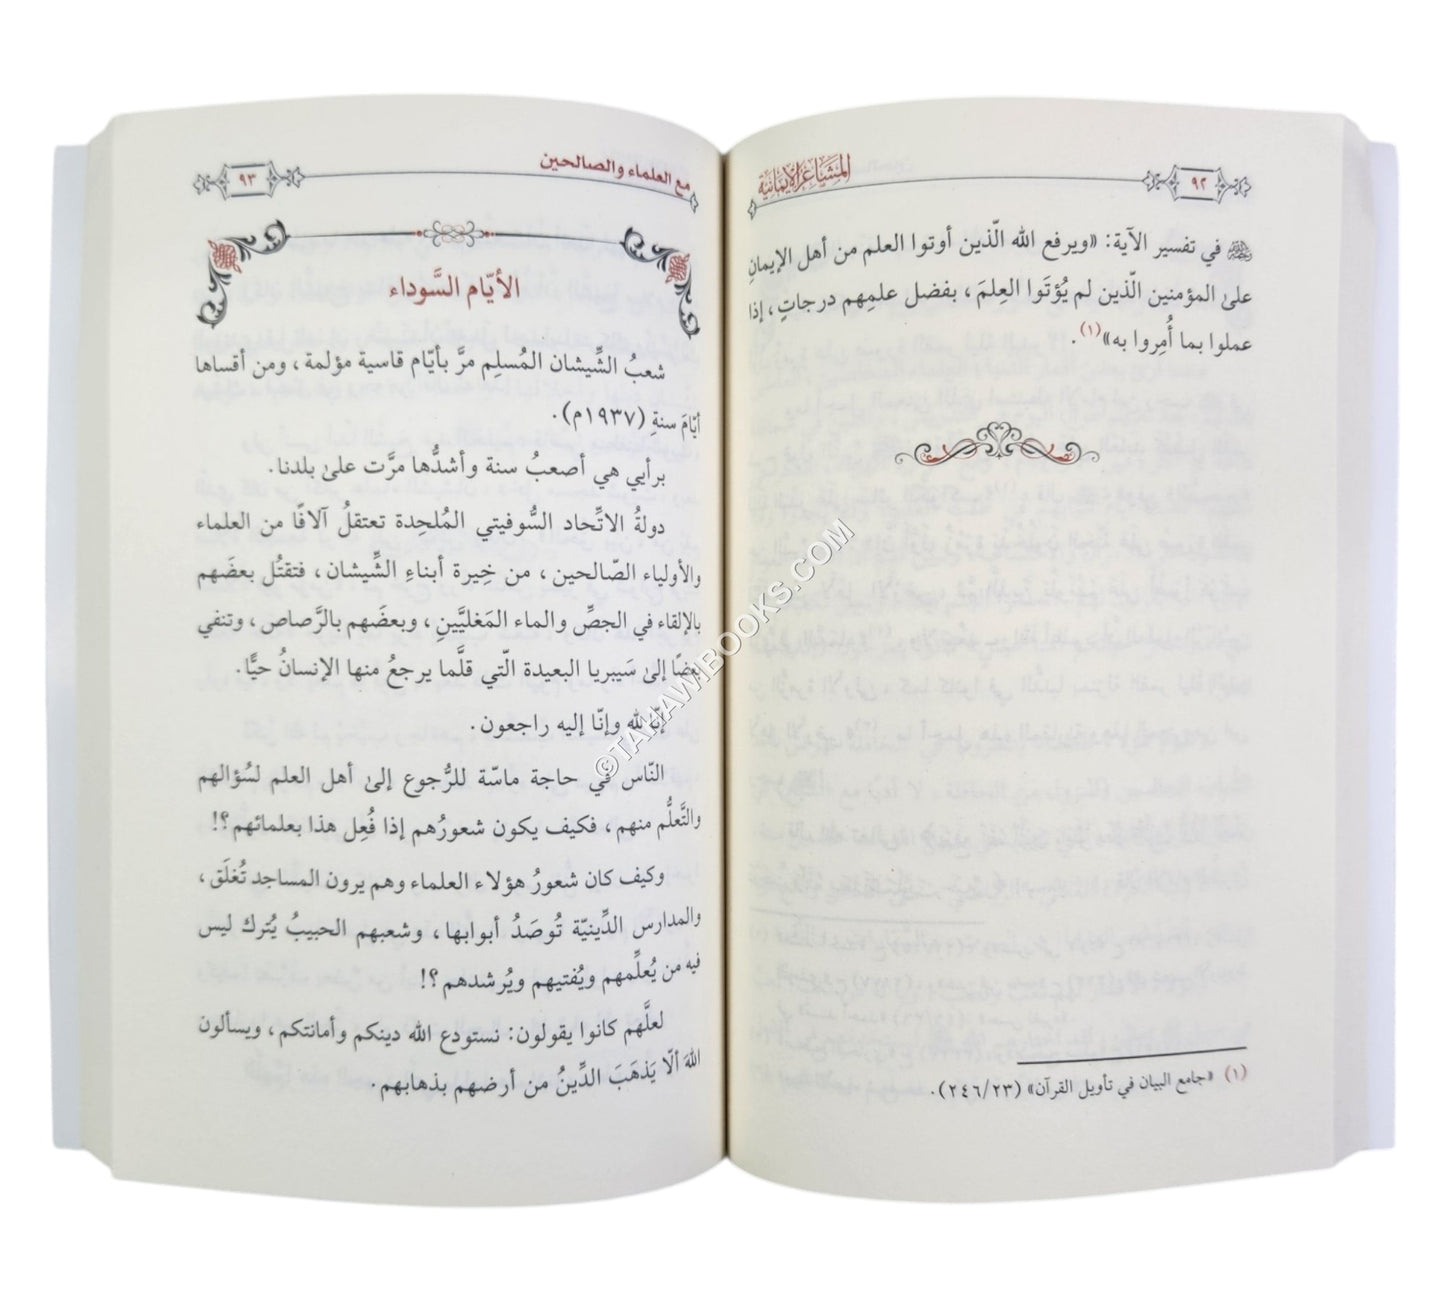 ٩٢
المشاعر الإيمانية
في تفسير الآية: «ويرفع الله الّذين أوتوا العلم من أهل الإيمانِ
علىٰ المؤمنين الّذين لم يُؤتَوا العِلمَ، بفضل علمِهم درجاتٍ، إذا
عملوا بما أُمِروا به»(١).
(١) «جامع البيان في تأويل القرآن» (٢٤٦/٢٣).
مع العلماء والصالحين
٩٣
الأيّام السَّوداء
شعبُ الشِّيشان المُسلم مرَّ بأيّام قاسية مؤلمة، ومن أقساها
أيّامَ سنةِ (١٩٣٧م).
برأيي هي أصعبُ سنة وأشدُّها مرَّت علىٰ بلدنا.
دولةُ الاتِّحاد السُّوفيتي المُلحِدة تعتقلُ آلافًا من العلماء
والأولياء الصّالحين، من خِيرة أبناءِ الشِّيشان، فتقتُل بعضَهم
بالإلقاء في الجصِّ والماء المَغليَّينِ، وبعضَهم بالرَّصاص، وتنفي
بعضًا إلىٰ سَيبريا البعيدة الّتي قلَّما يرجعُ منها الإنسانُ حيًّا.
إنّا لله وإنّا إليه راجعون.
النّاس في حاجة ماسّة للرُّجوع إلىٰ أهل العلم لسُؤالهم
والتَّعلُّم منهم، فكيف يكون شعورُهم إذا فُعِل هذا بعلمائهم؟!
وكيف كان شعورُ هؤلاء العلماء وهم يرون المساجد تُغلَق،
والمدارس الدِّينيّة تُوصَدُ أبوابها، وشعبهم الحبيبُ يُترك ليس
فيه من يُعلِّمهم ويُفتيهم ويُرشدهم؟!
لعلَّهم كانوا يقولون: نستودع الله دينكم وأمانتكم، ويسألون
اللهَ ألّا يَذهَبَ الدِّينُ من أرضهم بذهابهم.
©TAHAWIBOOKS.COM